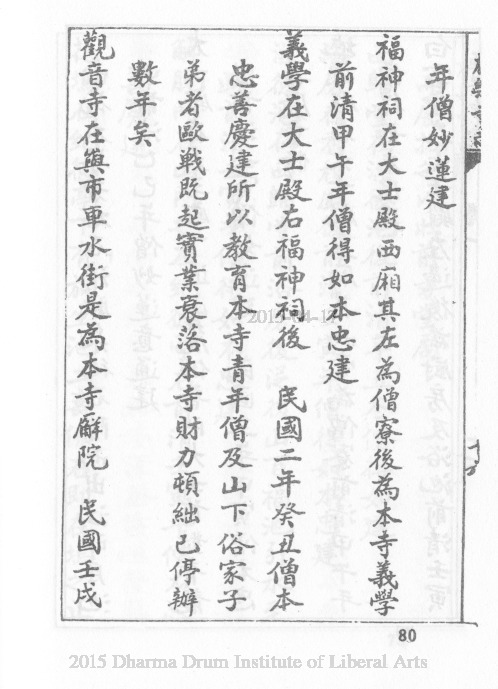 年僧妙蓮建
福神祠在大士殿西廂其左為僧寮後為本寺義學
前清甲午年僧得如本忠建
義學在大士殿右福神祠後 民國二年癸丑僧本
忠善慶建所以教育本寺青年僧及山下俗家子
弟者歐戰既起實業衰落本寺財力頓絀已停辦
數年矣
觀音寺在嶼市車水街是為本寺廨院 民國壬戌
80
2015 Dharma Drum Institute of Liberal Arts